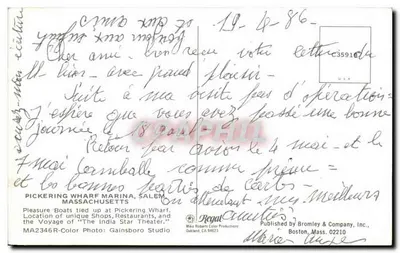 19-4-86-
Cher ami - bien reçu votre lettre du
11 - avec grand plaisir -
Suite à ma visite pas d'opération -
J'espère que vous avez passé une bonne
journée le 8 avril
Retour par avion le 4 mai - et le
7 mai comme prévu -
et les bonnes parties de cartes -
En attendant mes meilleures
amitiés,
excusez mon écriture
35910
PICKERING WHARF MARINA, SALEM,
MASSACHUSETTS
Pleasure Boats tied up at Pickering Wharf,
Location of unique Shops, Restaurants, and
the Voyage of "The India Star Theater."
MA2346R-Color Photo: Gainsboro Studio
Regal
Mike Roberts Color Productions
Oakland, CA 94671
Published by Bromley & Company, Inc.,
Boston, Mass. 02210